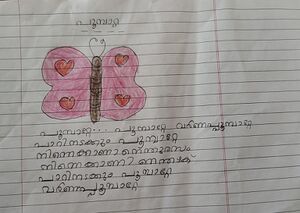 പൂമ്പാറ്റ
പൂമ്പാറ്റേ... പൂമ്പാറ്റേ വർണ്ണപ്പൂമ്പാറ്റേ
പാറിനടക്കും പൂമ്പാറ്റേ
നിന്നെക്കാണാനെന്തുരസം
പാറിനടക്കും പൂമ്പാറ്റേ
വർണ്ണപ്പൂമ്പാറ്റേ